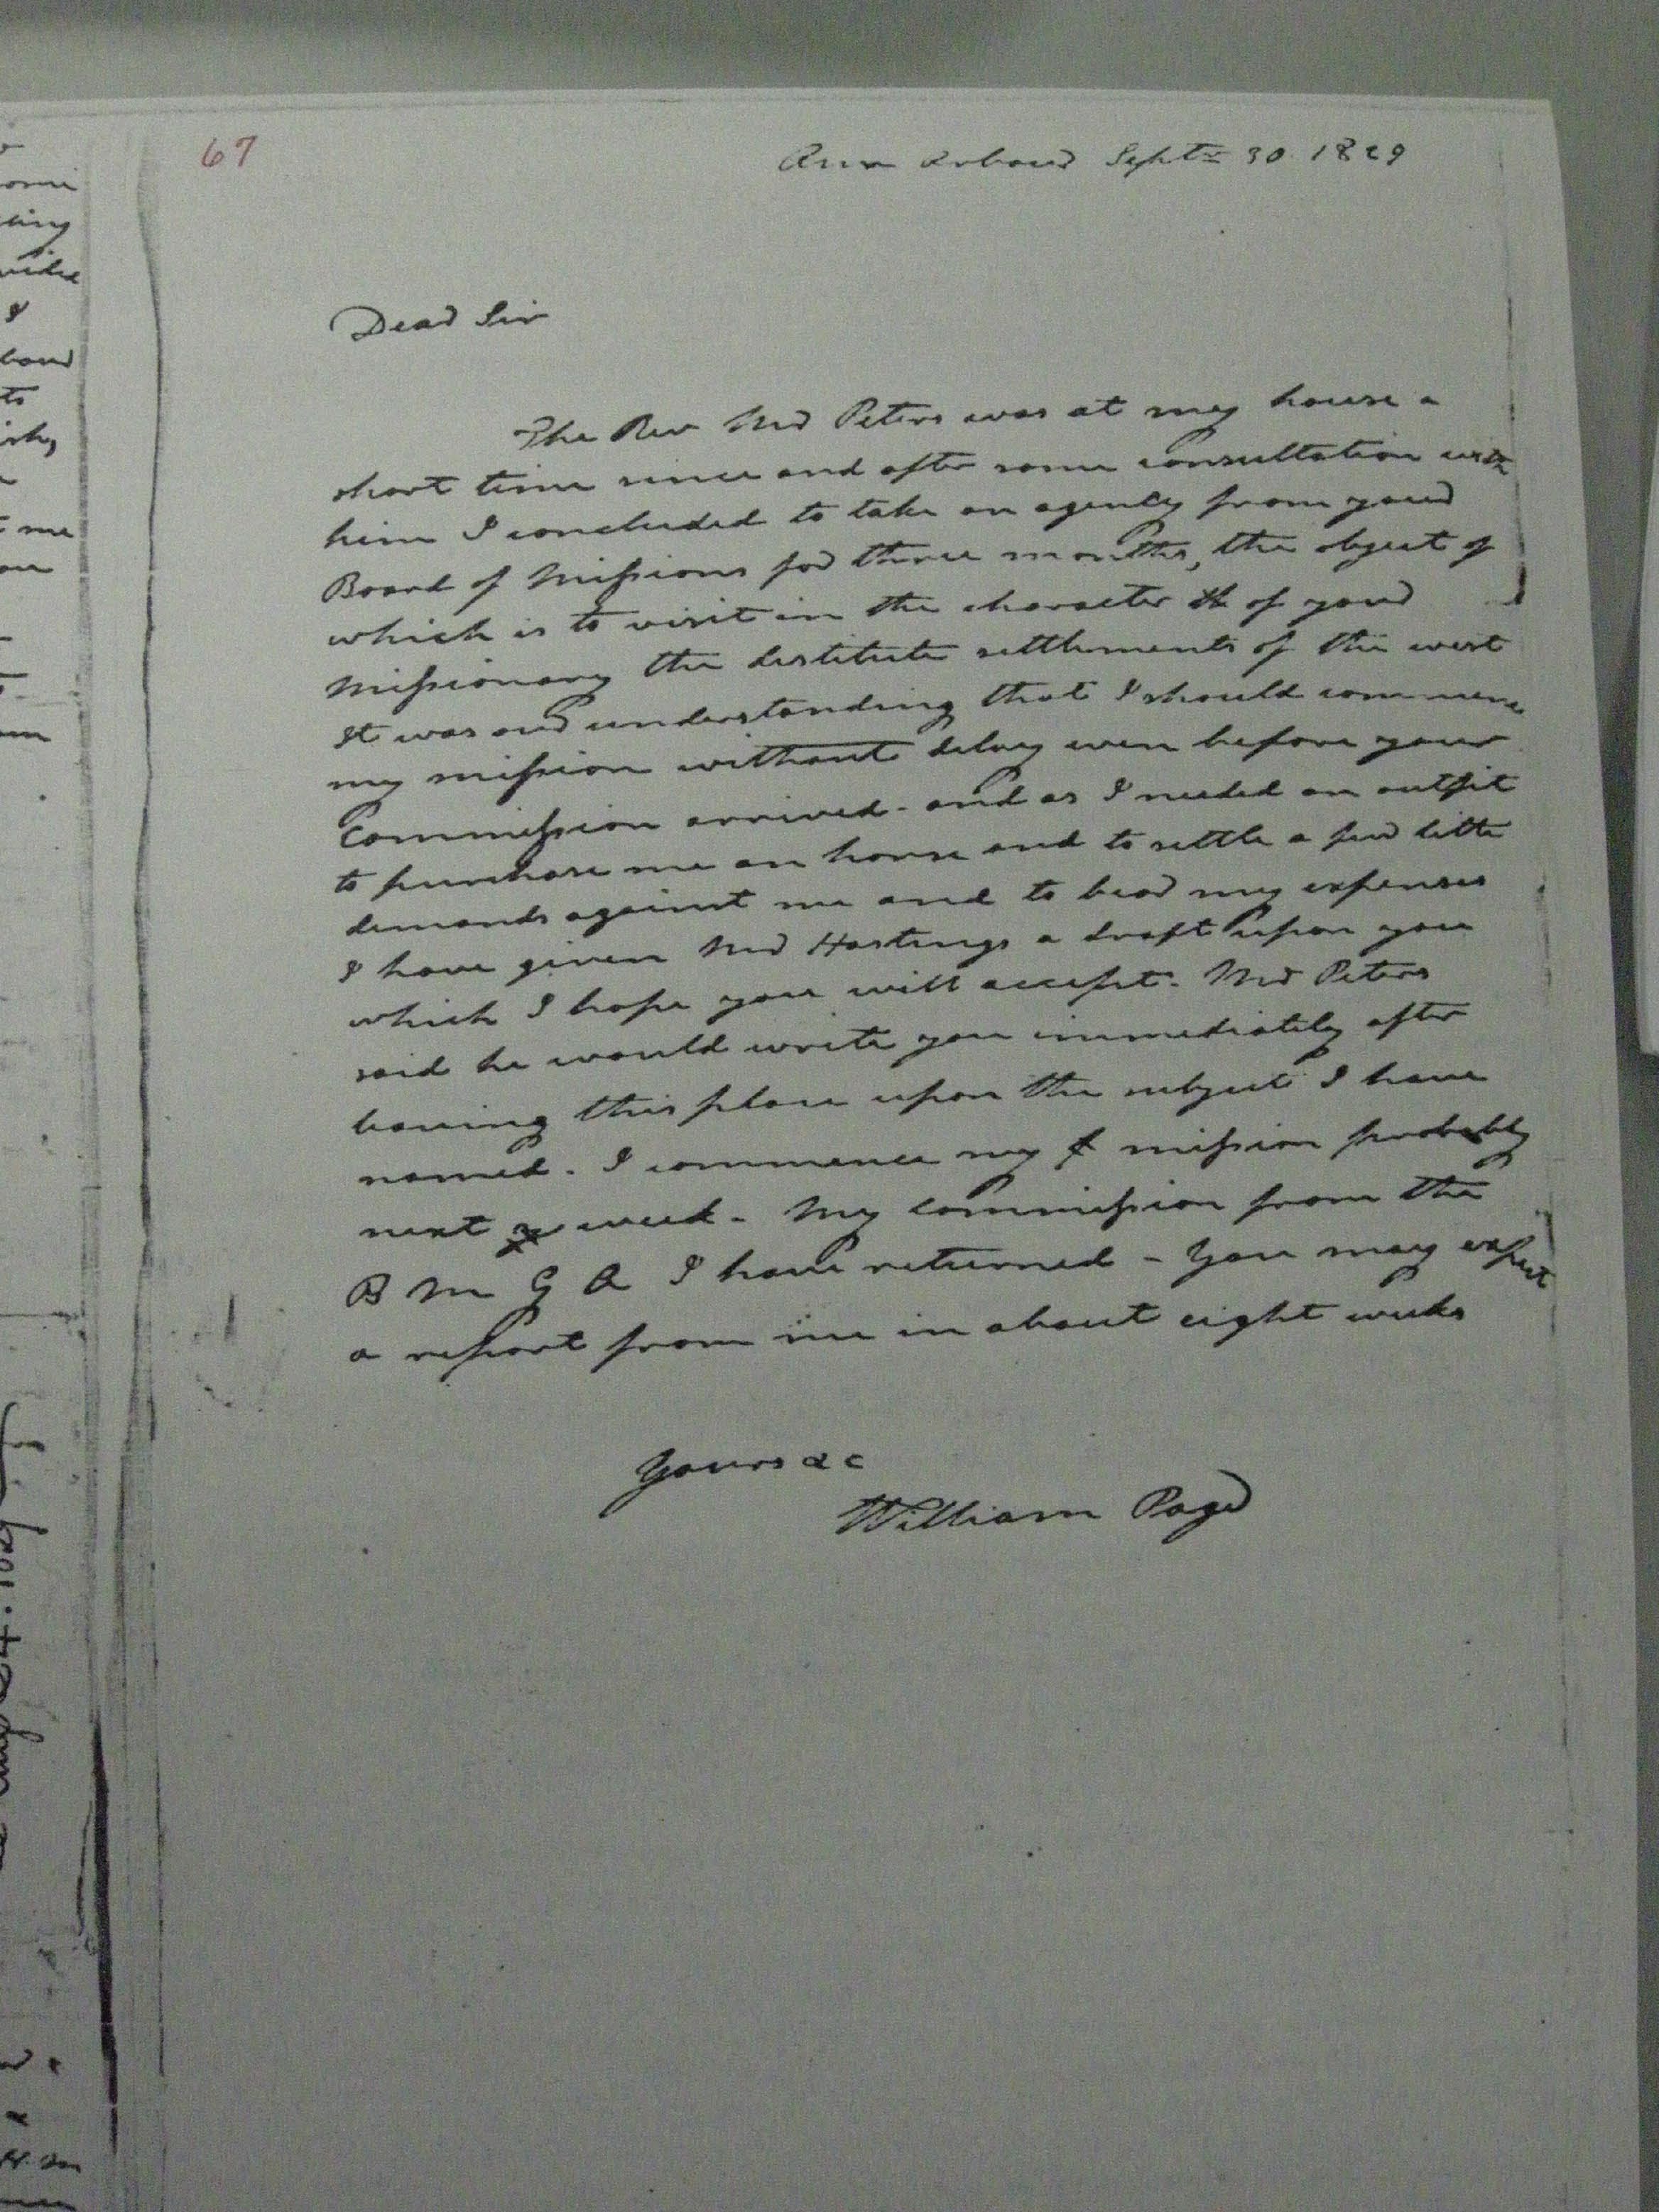 67
Ann Arbour Septr 30. 1829
Dear Sir
The Rev Mr Peters was at my house a
short time since and after some consultation with
him I concluded to take an agency from your
Board of Missions for three months, the object of
which is to visit in the character of your
missionary the destitute settlements of the west
It was our understanding that I should commence
my mission without delay even before your
commission arrived - and as I needed an outfit
to purchase me an horse and to settle a few little
demands against me and to bear my expenses
I have given Mr Hastings a draft upon you
which I hope you will accept. Mr Peters
said he would write you immediately after
leaving this place upon the subject I have
named. I commence my mission probably
next week - My commission from the
B M G A I have returned - You may expect
a report from me in about eight weeks
Yours &c
William Page